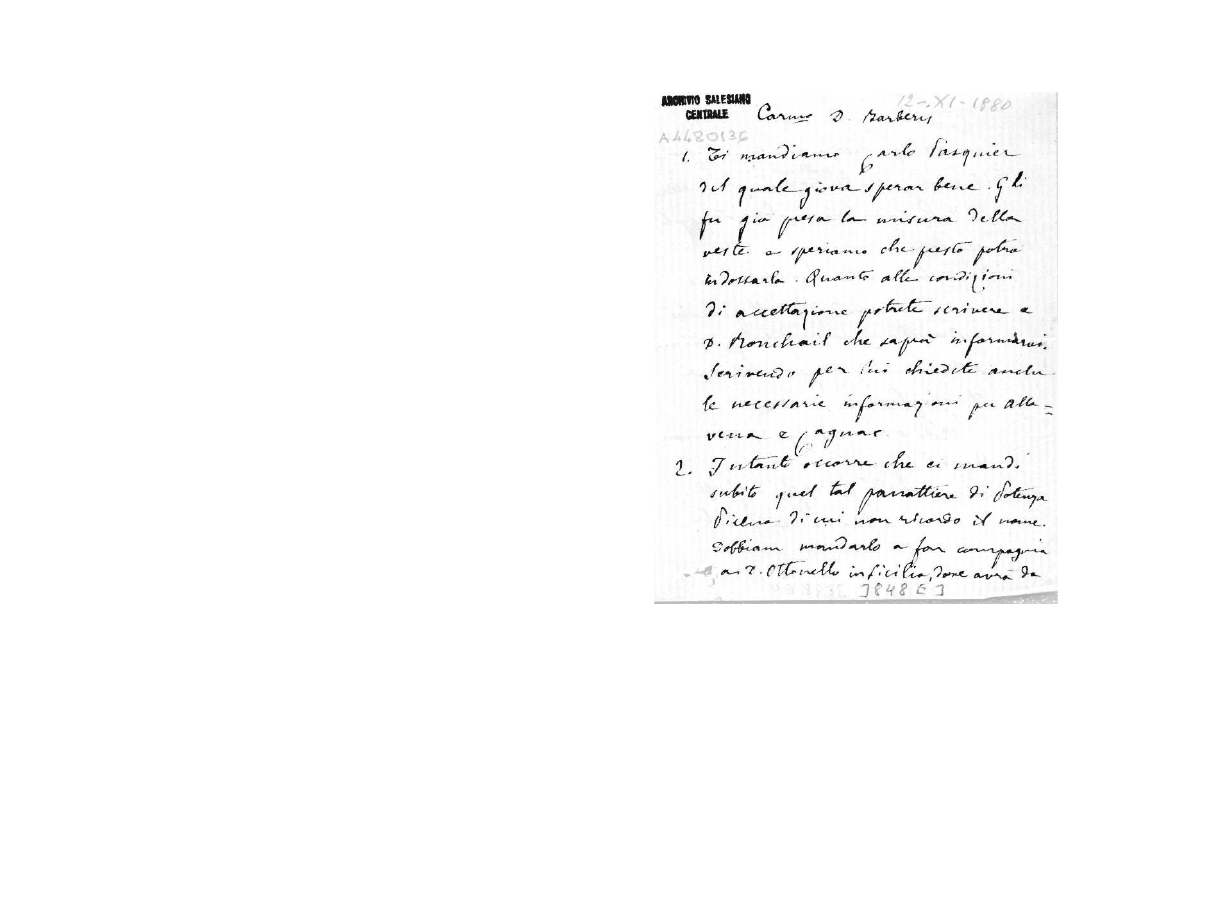 ARCHIVIO SALESIANO
CENTRALE
12-XI-1880
A4480136
Carmo D. Barberis
1. Ti mandiamo Carlo Pasquier
del quale giova sperar bene. Gli
fu già presa la misura della
veste e speriamo che presto potrà
indossarla. Quanto alle condizioni
di accettazione potrete scrivere a
D. Ronchail che saprà informarvi.
Scrivendo per lui chiedete anche
le necessarie informazioni per Alla=
vena e Cagnac.
2. Intanto occorre che ci mandi
subito quel tal panattiere di Potenza
Picena di cui non ricordo il nome.
Dobbiam mandarlo a far compagnia
a D. Ottonello in Sicilia, dove avrà da
]848 E]